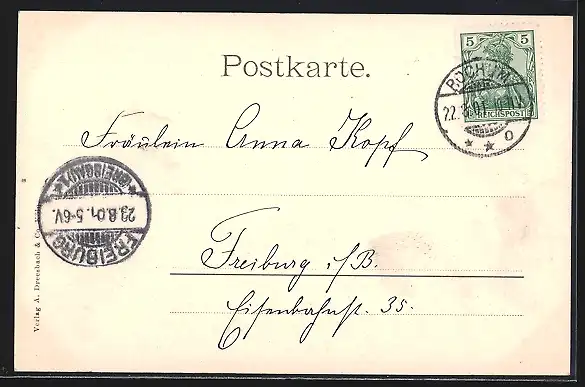 Postkarte.
5 5
REICHSPOST
BOCHUM
22.8.01
* * o
Fräulein Anna Kopf
FREIBURG
23.8.01.5-6V.
(BREISGAU)
Freiburg i/B.
Eisenbahnstr. 35.
Verlag A. Dreesbach & Co.